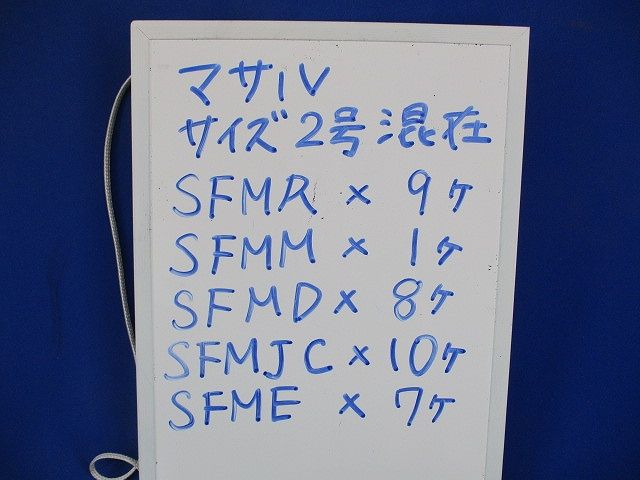 マサル
サイズ2号混在
SFMR × 9ヶ
SFMM × 1ヶ
SFMD × 8ヶ
SFMJC × 10ヶ
SFME × 7ヶ